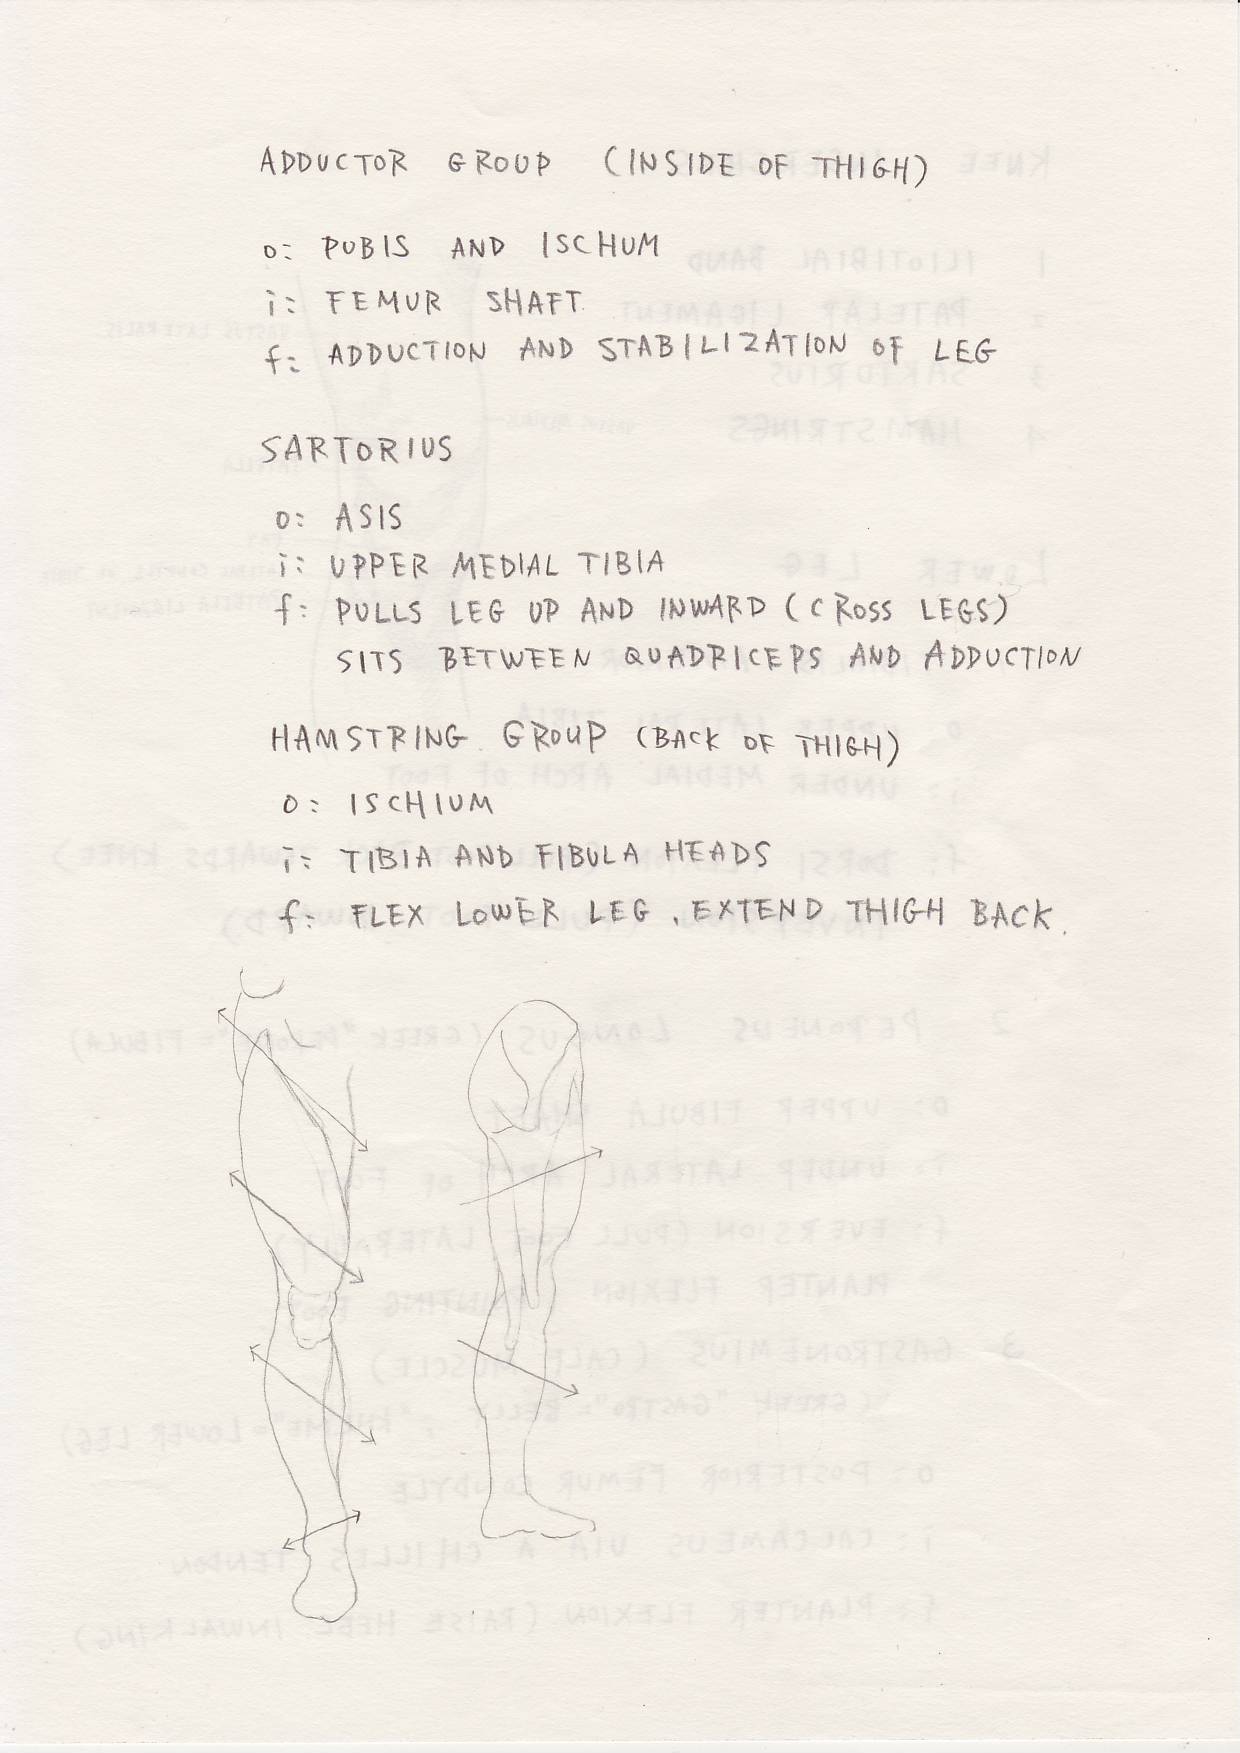 ADDUCTOR GROUP (INSIDE OF THIGH)
o: PUBIS AND ISCHUM
i: FEMUR SHAFT
f: ADDUCTION AND STABILIZATION OF LEG
SARTORIUS
o: ASIS
i: UPPER MEDIAL TIBIA
f: PULLS LEG UP AND INWARD (CROSS LEGS)
SITS BETWEEN QUADRICEPS AND ADDUCTION
HAMSTRING GROUP (BACK OF THIGH)
o: ISCHIUM
i: TIBIA AND FIBULA HEADS
f: FLEX LOWER LEG, EXTEND THIGH BACK.